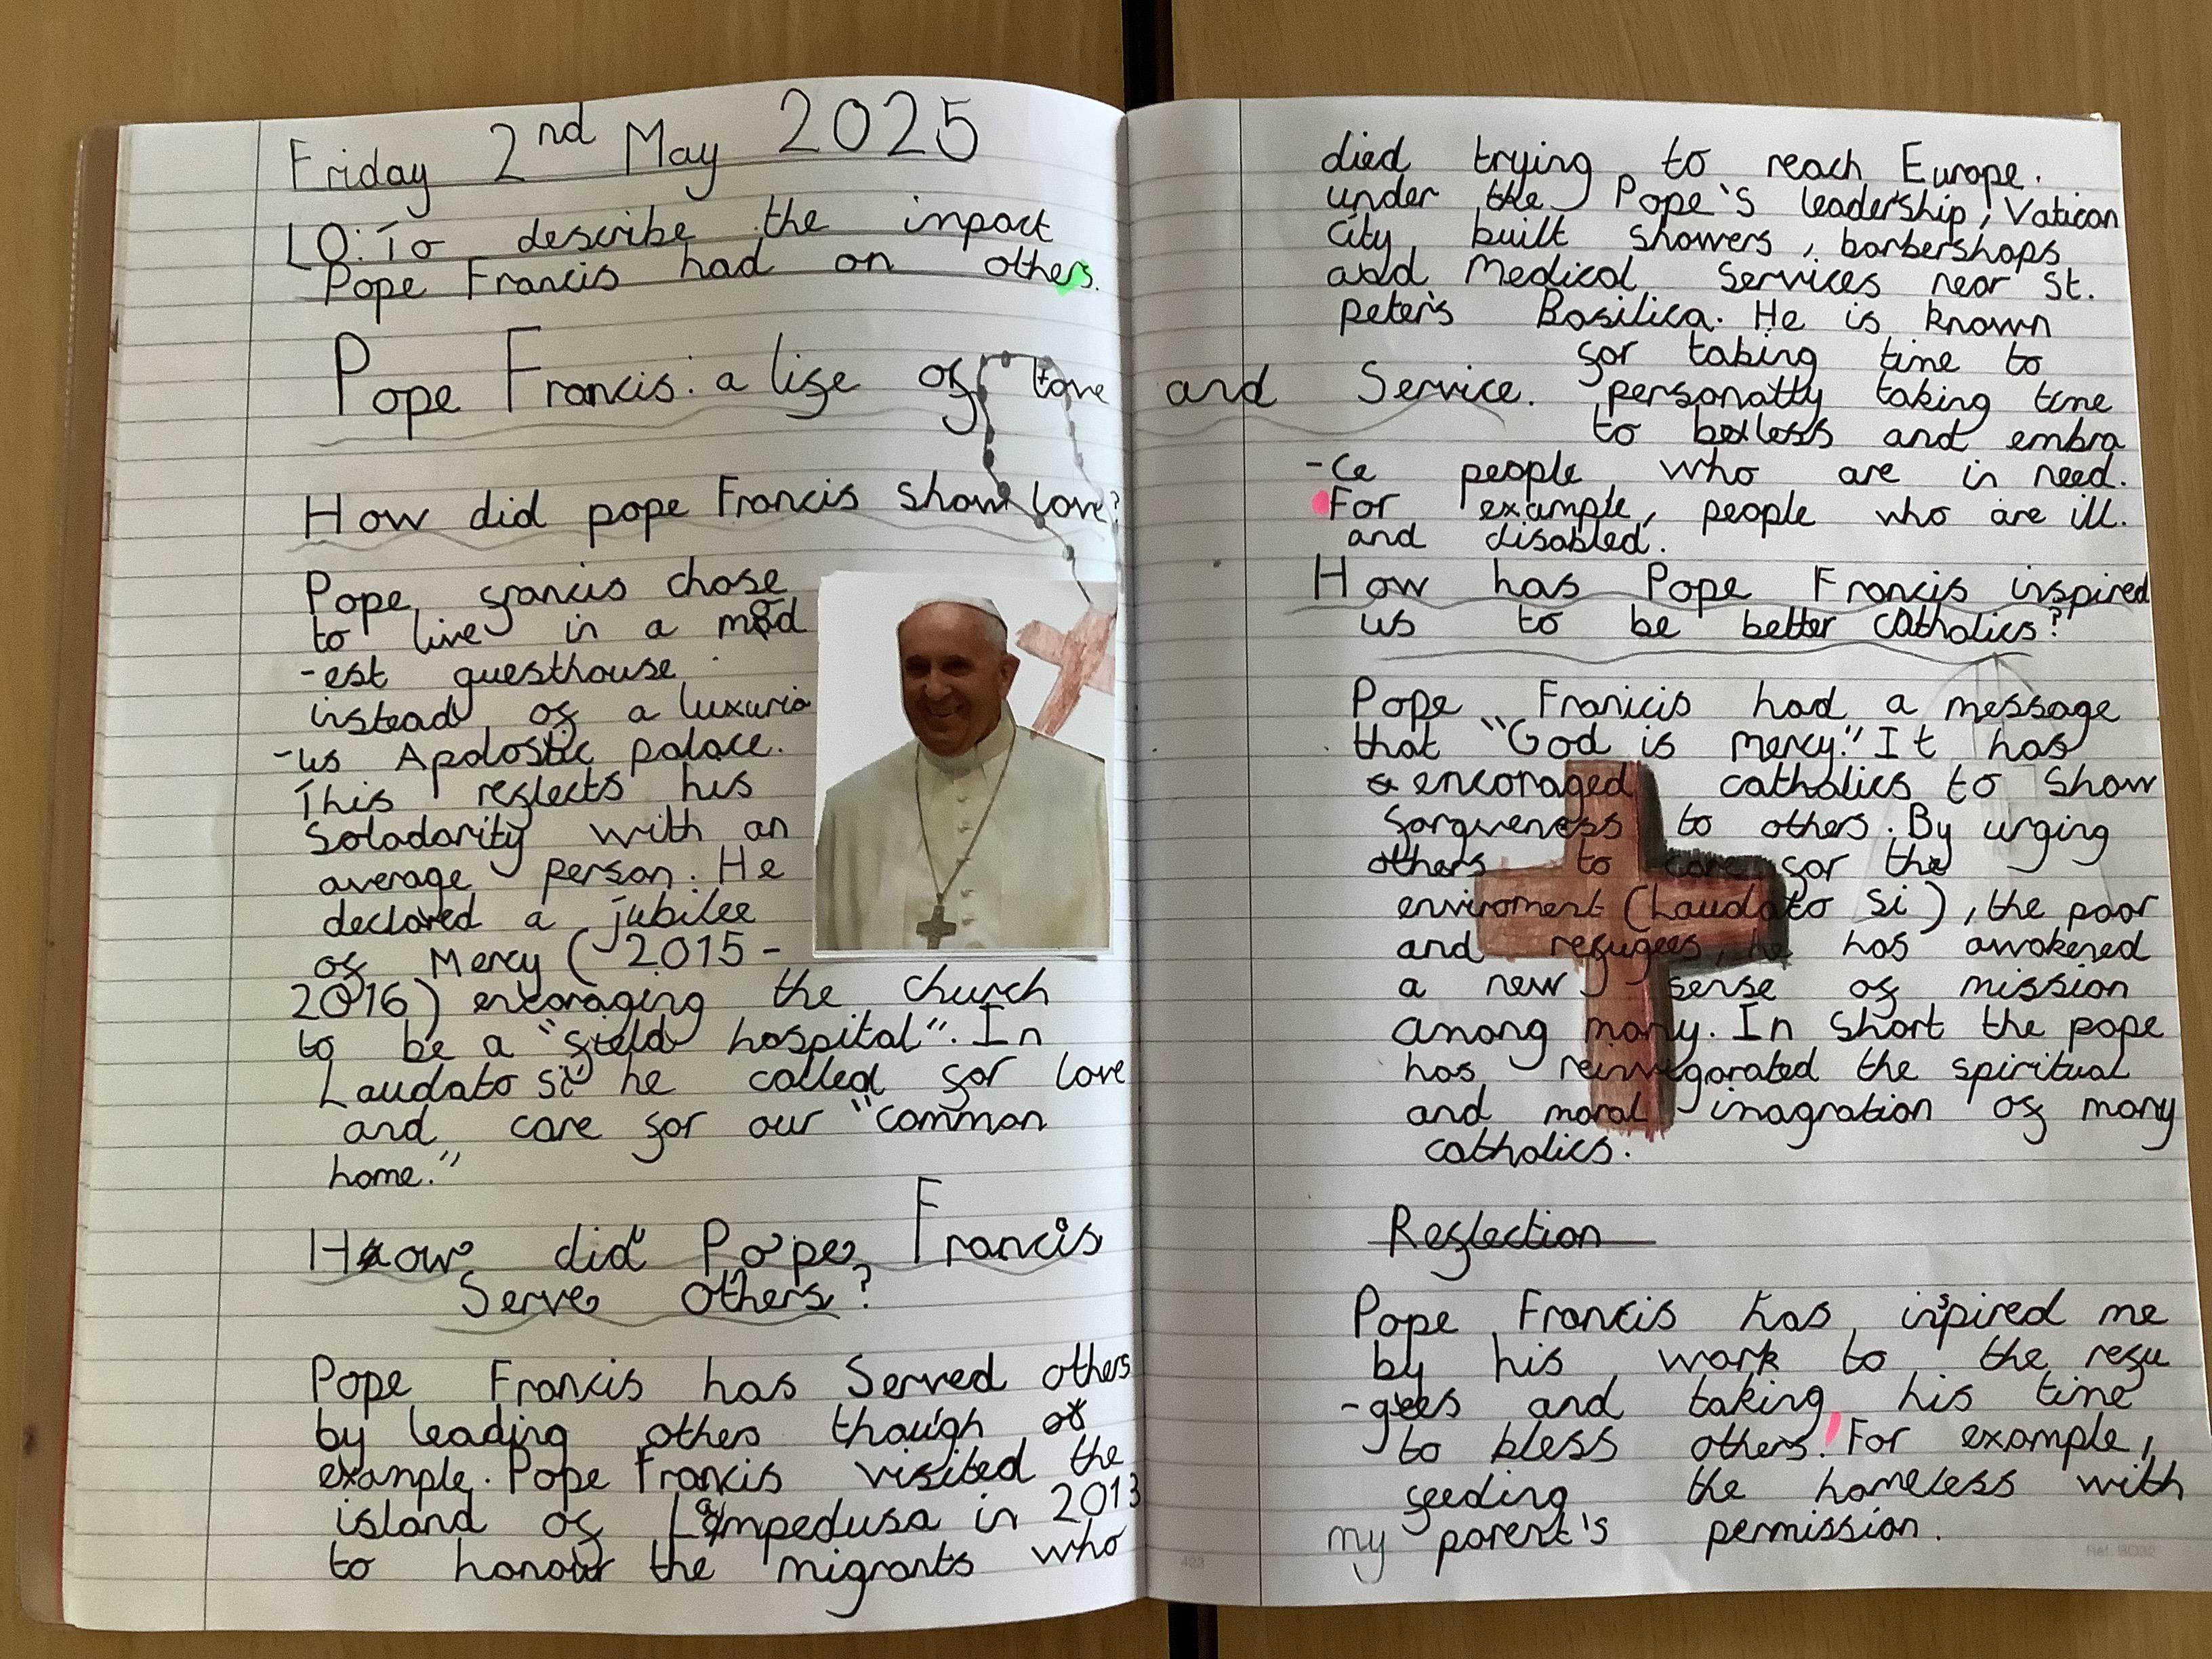 Friday 2nd May 2025
LO: To describe the impact
Pope Francis had on others.
Pope Francis: a life of love and Service.
How did pope Francis show love?
Pope francis chose
to live in a mod
-est guesthouse
instead of a luxurio
-us Apolostic palace.
This reflects his
Soladarity with an
average person. He
declared a jubilee
of Mercy (2015-
2016) encoraging the church
to be a "field hospital". In
Laudato si he called for love
and care for our "common
home."
How did Pope Francis
Serve others?
Pope Francis has Served others
by leading others though
example. Pope Francis visited the
island of Lampedusa in 2013
to honour the migrants who
died trying to reach Europe.
under the Pope's leadership, Vatican
City built showers, barbershops
and Medical Services near St.
peter's Basilica. He is known
for taking time to
personally taking time
to bless and embra
-ce people who are in need.
For example, people who are ill.
and disabled.
How has Pope Francis inspired
us to be better catholics?
Pope Franicis had a message
that "God is mercy." It has
encoraged catholics to show
forgiveness to others. By urging
others to care for the
enviroment (Laudato si), the poor
and refugees, he has awakened
a new sense of mission
among many. In short the pope
has reinvegorated the spiritual
and moral imagration of many
catholics.
Reflection
Pope Francis has inspired me
by his work to the refu
-gees and taking his time
to bless others. For example,
feeding the homeless with
my parent's permission.
423
Ref: BD32